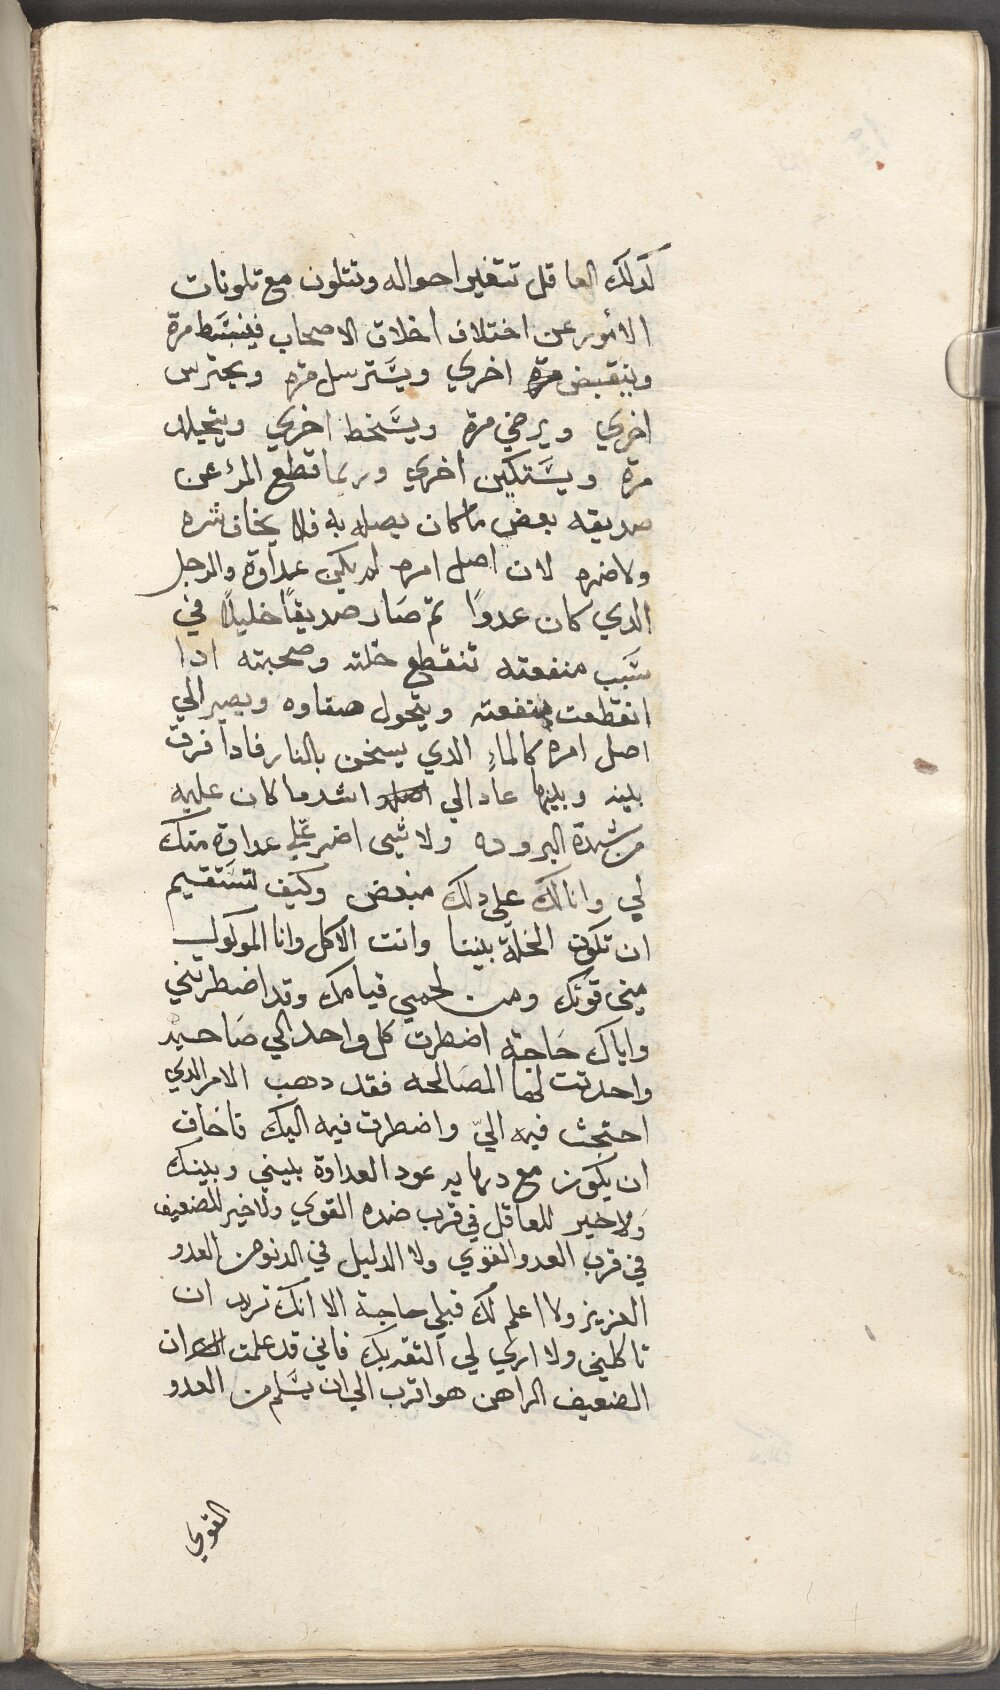 كدلك العاقل تتغير احواله وتتلون مع تلونات
الامور عن اختلاف اخلاق الاصحاب فينبسط مرة
وينقبض مرة اخري ويسترسل مره ويحترس
اخري ويرضي مرة ويسخط اخري ويتجلد
مرة ويستكين اخري وربما قطع المرؤ عن
صديقه بعض ما كان يصله به فلا يخاف شره
ولا ضره لان اصل امره لم يكن عداوة والرجل
الدي كان عدوًا تم صار صديقًا خليلًا في
سبب منفعته تنقطع خلته وصحبته ادا
انقطعت منفعته ويتحول صفاوه ويصير الي
اصل امره كالماءِ الدي يسخن بالنار فادا فرق
بينه وبينها عاد الي اشد ما كان عليه
من شدة البروده ولا شي اضر علي عداوة منك
لي وانا لك علي دلك مبغض وكيف لتستقيم
ان تكون الخلة بيننا وانت الاكل وانا الموكول
مني قوتك ومن لحمي قيامك وقد اضطرتني
واياك حاجة اضطرت كل واحد الي صاحبه
واحدتت لهما المصالحه فقد دهب الامر الدي
احتجت فيه اليّ واضطرت فيه اليك فاخاف
ان يكون مع دهابه عود العداوة بيني وبينك
ولا خير للعاقل في قرب ضده القوي ولا خير للضعيف
في قرب العدو القوي ولا الدليل في الدنو من العدو
العزيز ولا اعلم لك قبلي حاجة الا انك تريد ان
تاكلني ولا اري لي التقه بك فاني قد علمت ان
الضعيف الراهن هو اقرب الي ان يسلم من العدو
القوي